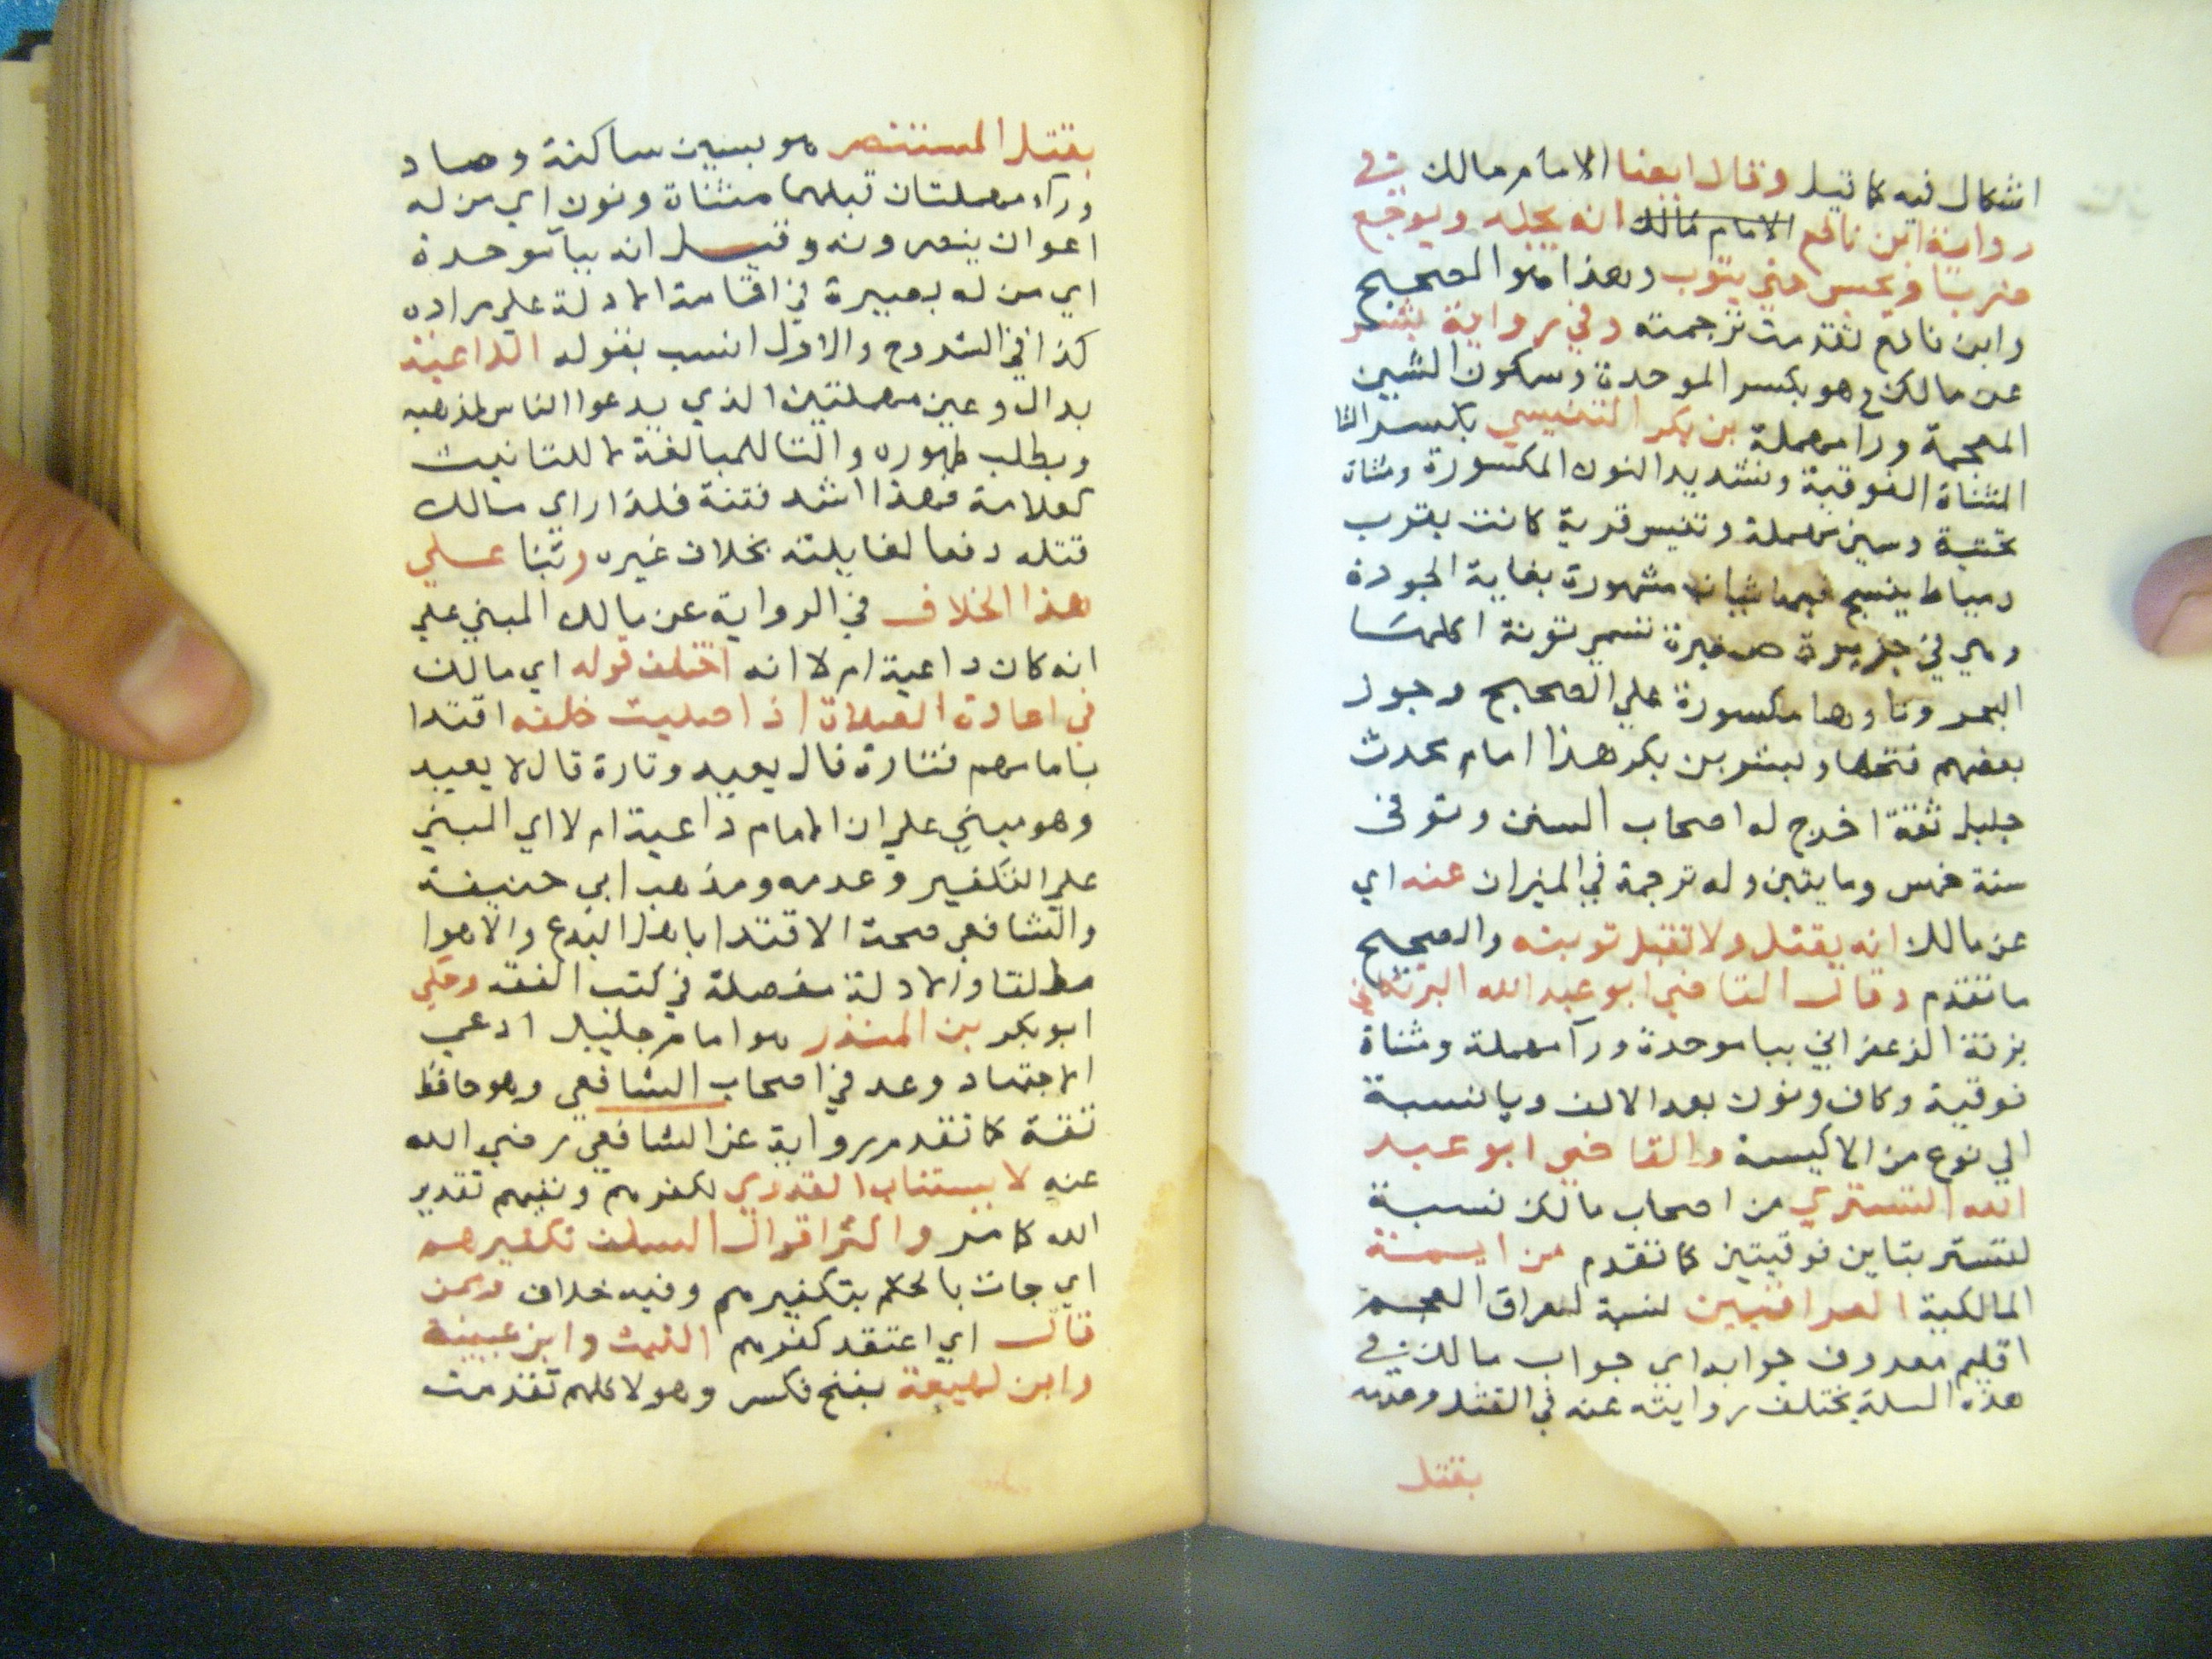 اشكال فيه كما قيل وقال ايضا الامام مالك في
رواية ابن نافع الامام مالك انه يجلد ويوجع
ضربا ويحبس حتي يتوب وهذا هو الصحيح
وابن نافع تقدمت ترجمته وفي رواية بشر
عن مالك وهو بكسر الموحدة وسكون الشين
المعجمة ورا مهملة بن بكر التنيسي بكسر التا
المثناة الفوقية وتشديد النون المكسورة ومثناة
تحتية وسين مهملة وتنيس قرية كانت بقرب
دمياط ينسج فيها ثياب مشهورة بغاية الجودة
وهي في جزيرة صغيرة تسمي تونة اكلها
البحر وتاوها مكسورة علي الصحيح وجوز
بعضهم فتحها وبشر بن بكر هذا امام محدث
جليل ثقة اخرج له اصحاب السنن وتوفى
سنة خمس ومايتين وله ترجمة في الميزان عنه اي
عن مالك انه يقتل ولا تقبل توبته والصحيح
ما تقدم وقال القاضي ابو عبد الله البرتكاني
بزنة الزعفراني ببا موحدة ورآ مهملة ومثناة
فوقية وكاف ونون بعد الالف ويا نسبة
الي نوع من الاكيسة والقاضي ابو عبد
الله التستري من اصحاب مالك نسبة
لتستر بتاين فوقيتين كما تقدم من ايمة
المالكية العراقيين نسبة لعراق العجم
اقليم معروف جوابه اي جواب مالك في
هذه المسلة يختلف روايته عنه في القتل وعدمه
بقتل
بقتل المستنصر هو بسين ساكنة وصاد
ورآء مهملتان قبلهما مثناة ونون اي من له
اعوان ينصرونه وقيل انه ببآ موحدة
اي من له بصيرة في اقامة الادلة علي مراده
كذا في الشروح والاول انسب بقوله الداعية
بدال وعين مهملتين الذي يدعوا الناس لمذهبه
ويطلب ظهوره والتا للمبالغة لا للتانيث
كعلامة فهذا اشد فتنة فلذا راي مالك
قتله دفعا لغايلته بخلاف غيره وبنا علي
هذا الخلاف في الرواية عن مالك المبني علي
انه كان داعية ام لا انه اختلف قوله اي مالك
في اعادة الصلاة اذا صليت خلفه اقتدا
بامامهم فتارة قال يعيد وتارة قال لا يعيد
وهو مبني علي ان الامام داعية ام لا اي المبني
علي التكفير وعدمه ومذهب ابي حنيفة
والشافعي صحة الاقتدا باهل البدع والاهوا
مطلقا والادلة مفصلة في كتب الفقه وحكي
ابو بكر بن المنذر هو امام جليل ادعي
الاجتهاد وعد في اصحاب الشافعي وهو حافظ
ثقة كما تقدم رواية عن الشافعي رضي الله
عنه لا يستتاب القدري لكفرهم ونفيهم تقدير
الله كما مر واكثر اقوال السلف تكفيرهم
اي جات بالحكم بتكفيرهم وفيه خلاف وممن
قال اي اعتقد كفرهم الليث وابن عيينة
وابن لهيعة بفتح فكسر وهولا كلهم تقدمت